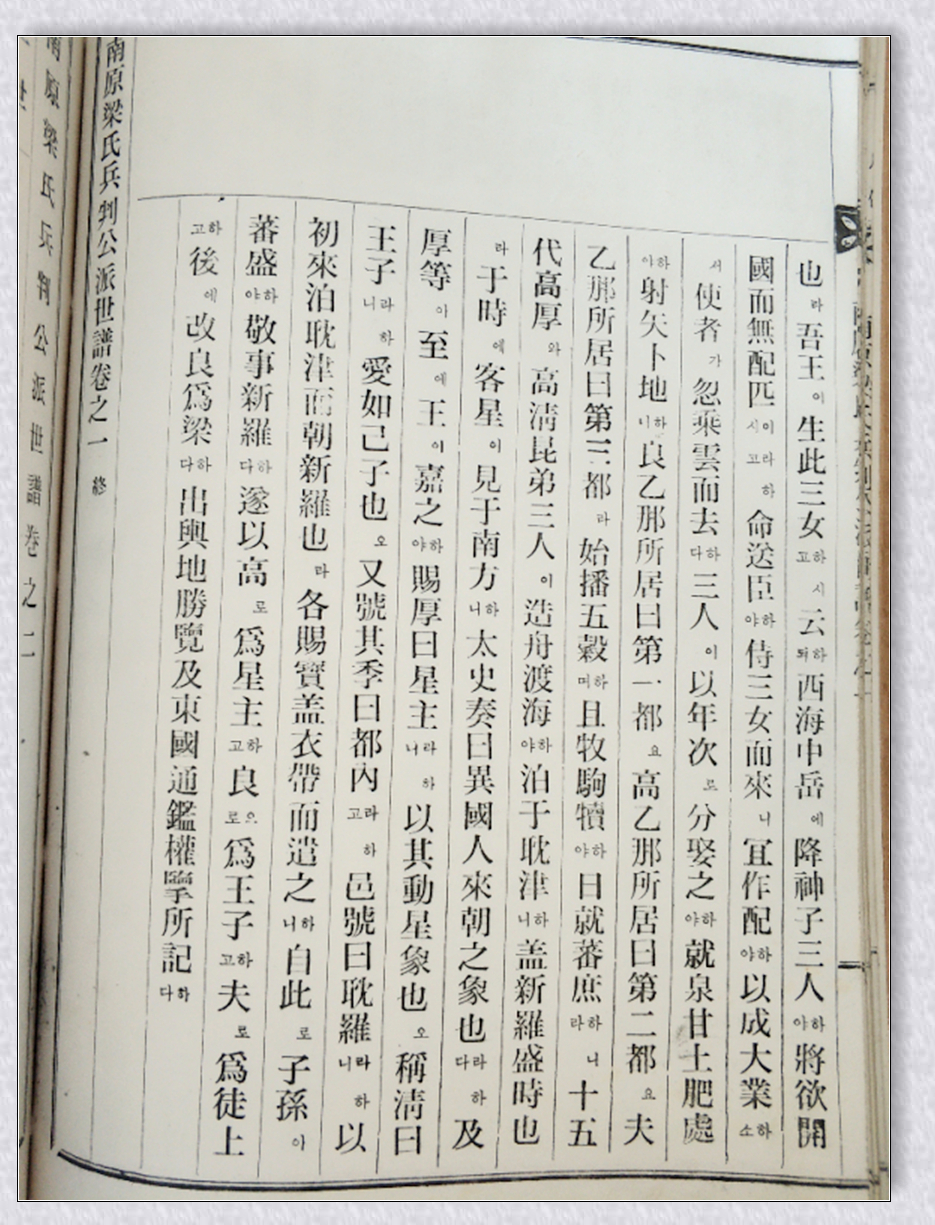 也라吾王이生此三女하고시云하되西海中岳에降神子三人하야將欲開
國而無配匹이시라고하命送臣하야侍三女而來니冝作配하야以成大業하소
서使者가忽乘雲而去하다三人이以年次로分娶之하야就泉甘土肥處
하야射矢卜地하니良乙那所居曰第一都요高乙那所居曰第二都요夫
乙那所居曰第三都라始播五穀하며且牧駒犢하야日就蕃庶하라니十五
代高厚와高淸昆弟三人이造舟渡海하야泊于耽津하니盖新羅盛時也
라于時에客星이見于南方하니太史奏曰異國人來朝之象也라다하及
厚等이至에王이嘉之하야賜厚曰星主라니하以其動星象也오稱淸曰
王子라니하愛如己子也오又號其季曰都內라고하邑號曰耽羅라니하以
初來泊耽津而朝新羅也라各賜寶盖衣帶而遣之하니自此로子孫이
蕃盛하야敬事新羅하다遂以高로爲星主하고良으로爲王子하고夫로爲徒上
하고後에改良爲梁하다出輿地勝覽及東國通鑑權擥所記하다
南原梁氏兵判公派世譜卷之一 終
南原梁氏兵判公派世譜卷之二